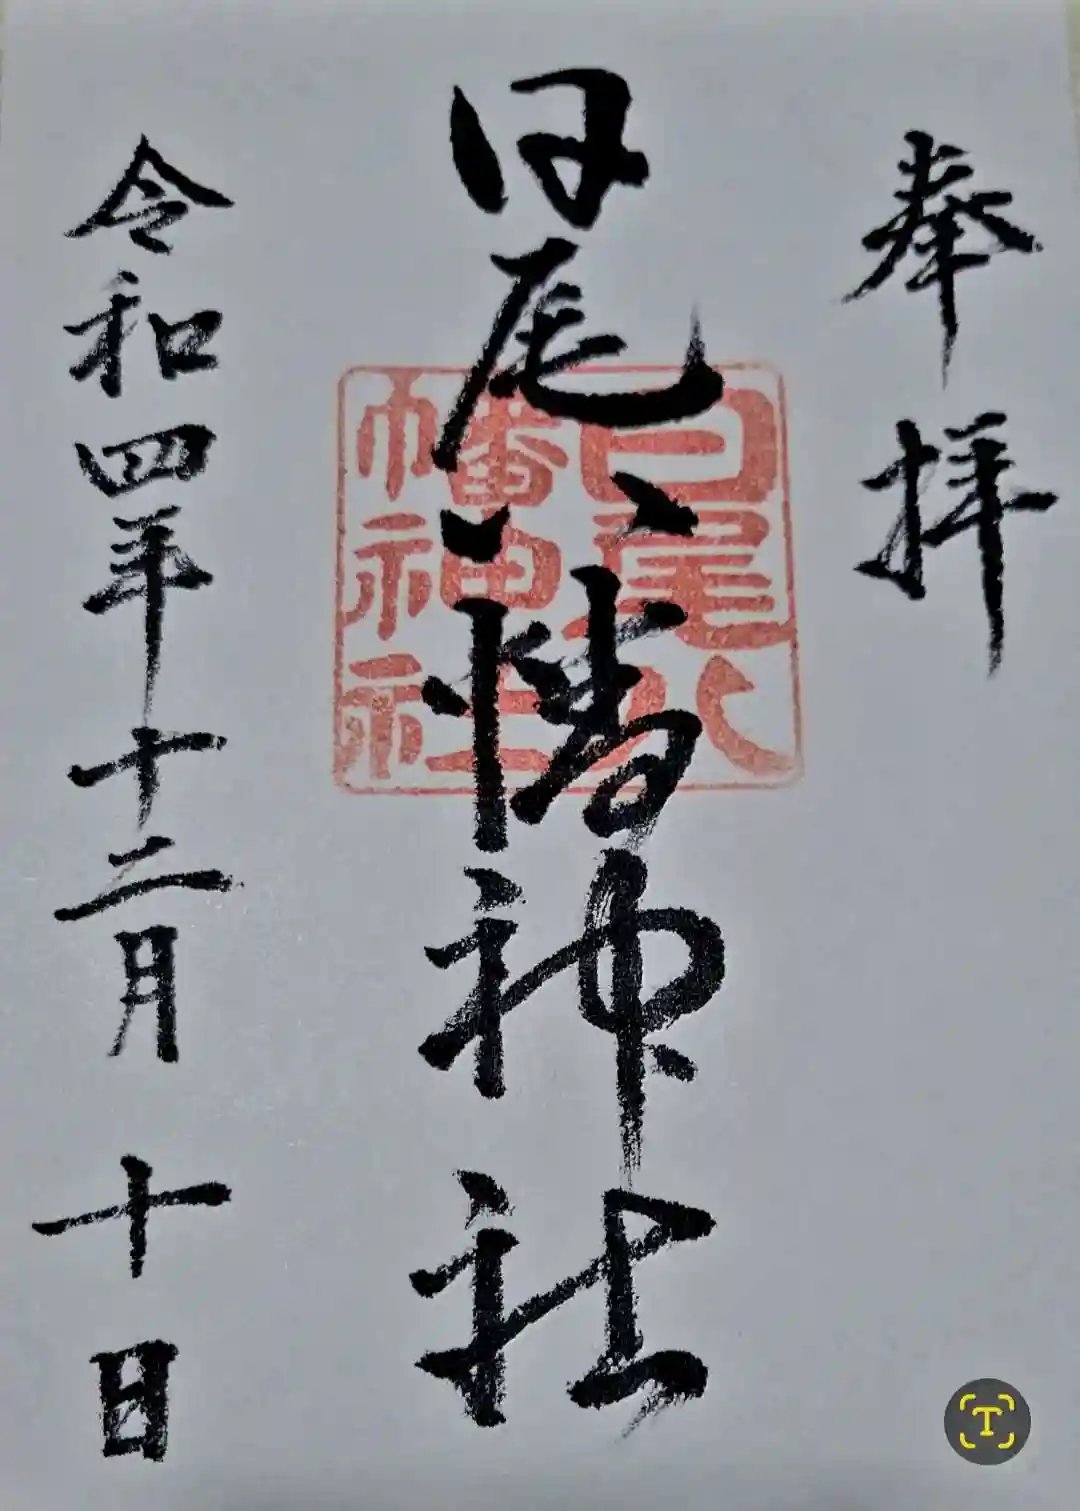 奉拝
日尾八幡神社
日尾八
幡神社
令和四年十二月十日